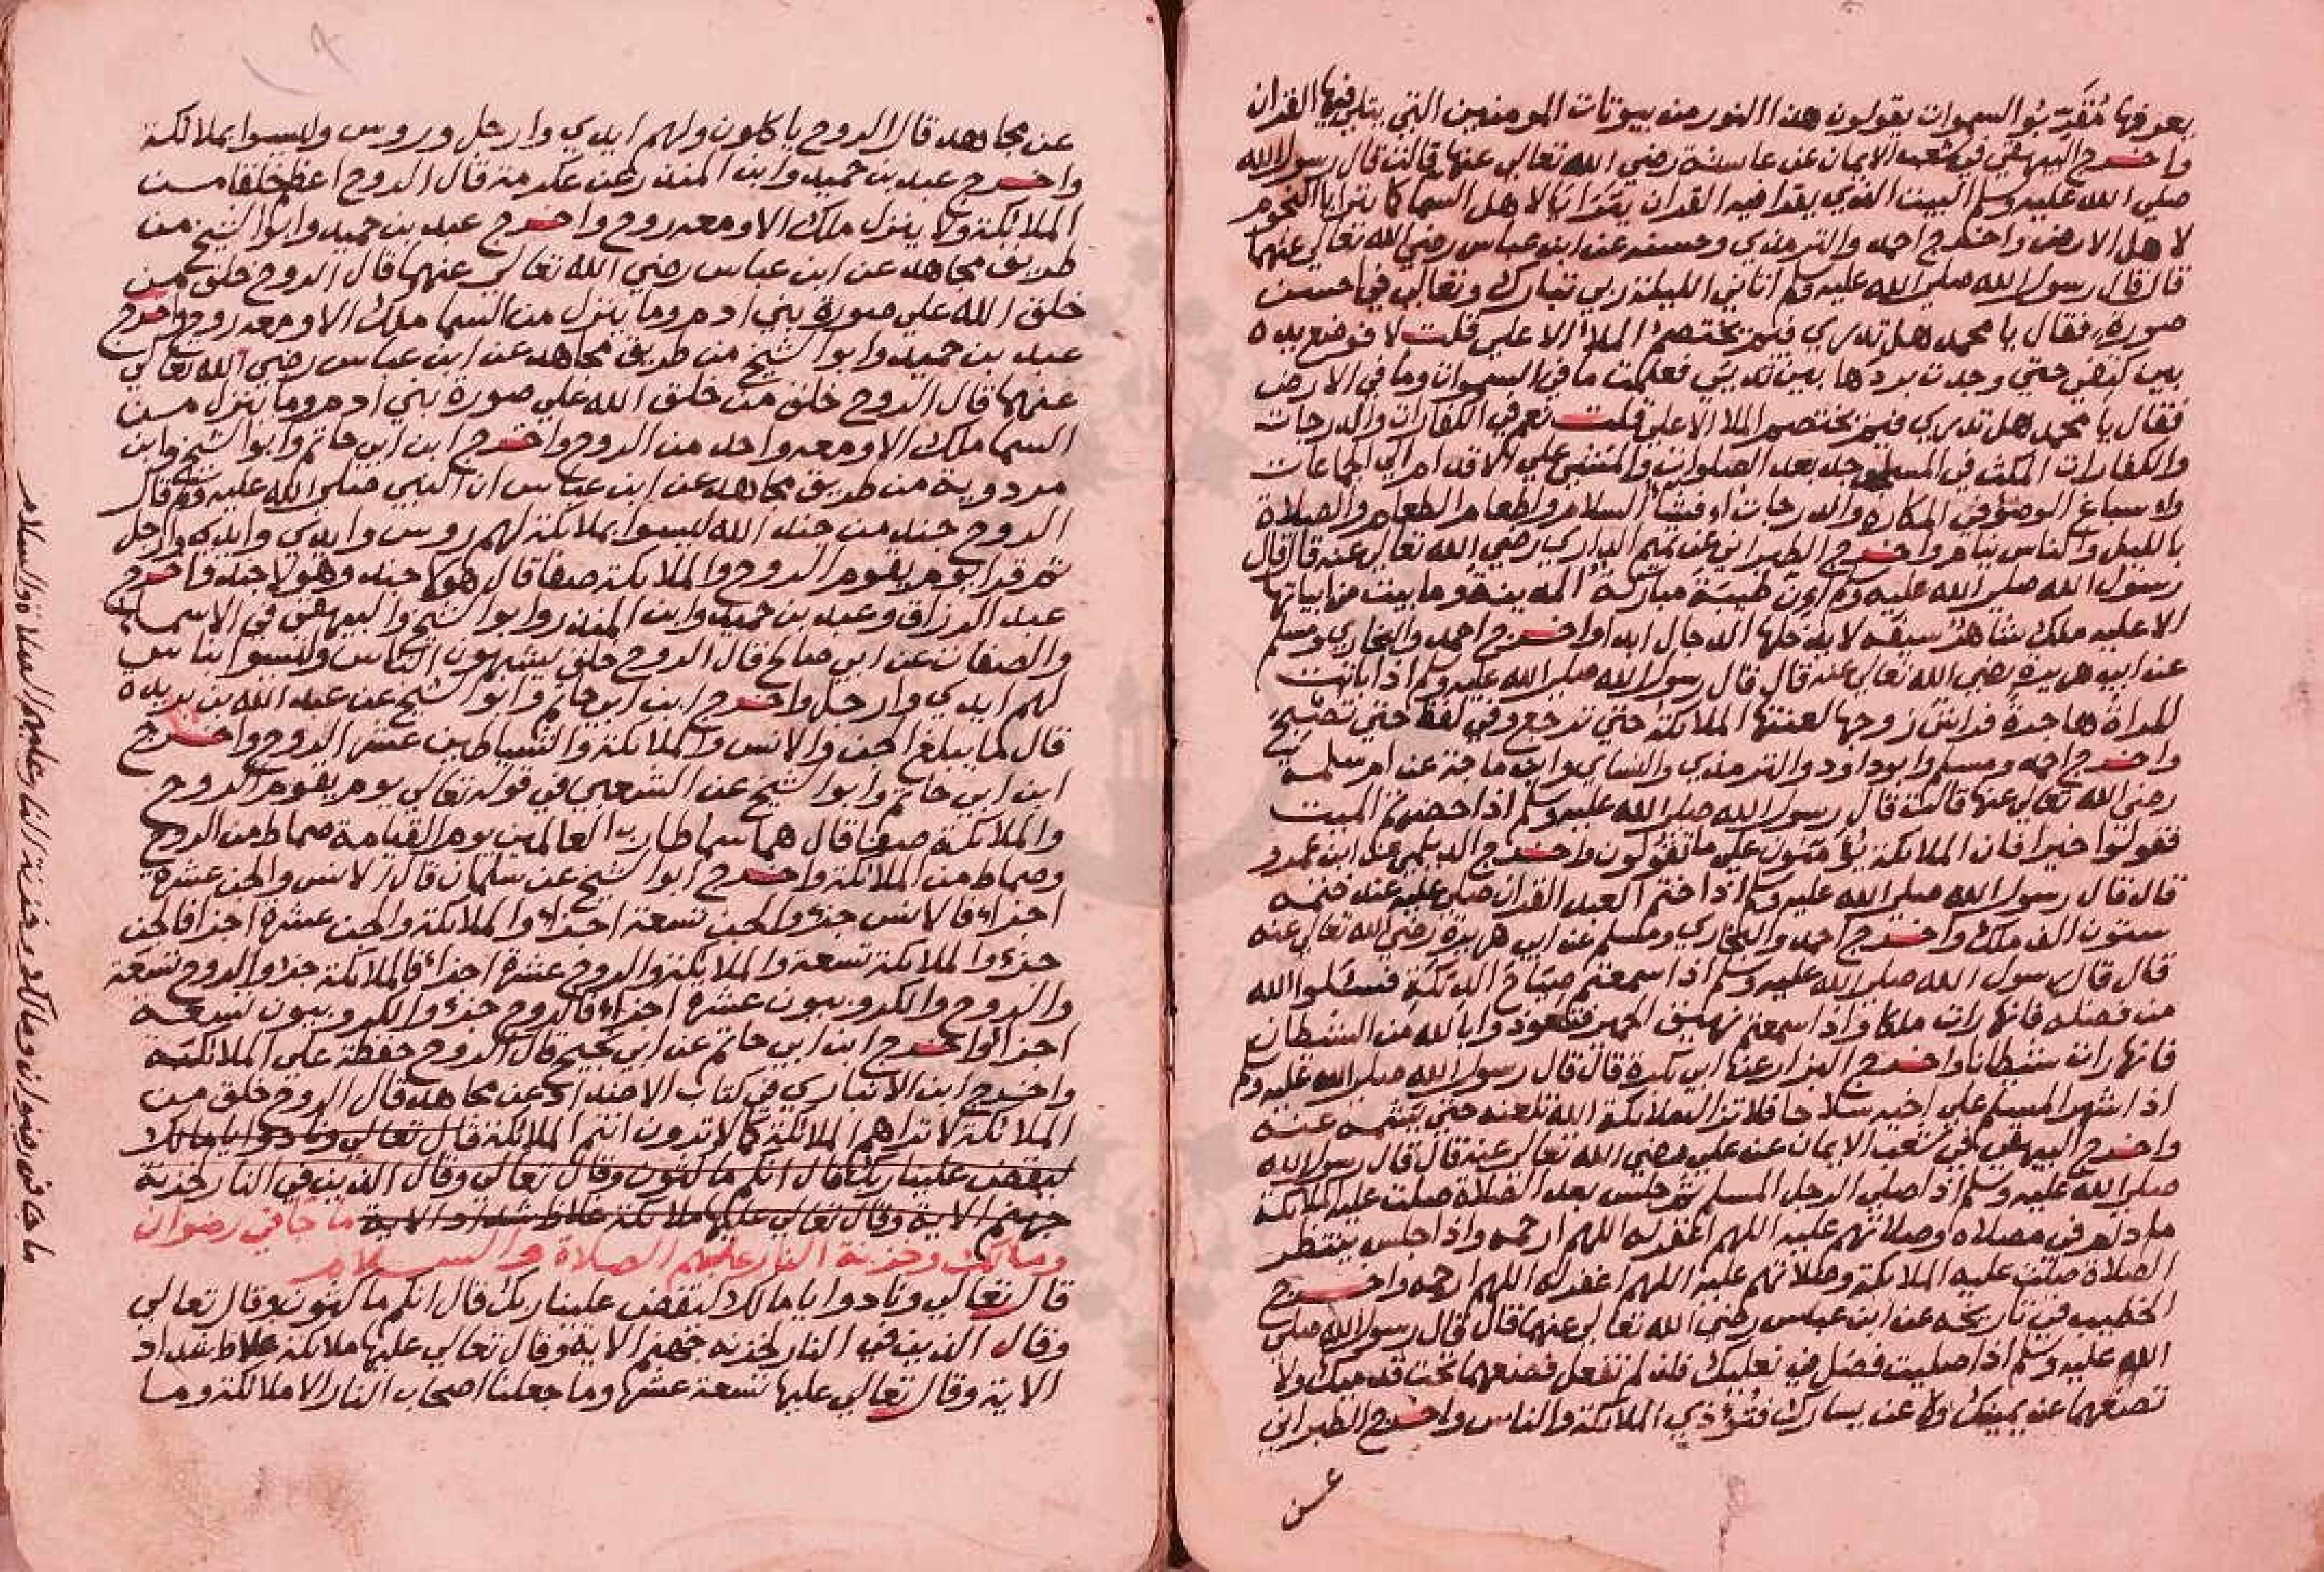 يعرفها مُقَرّبُو السموات يقولون هذا النور من بيوتات المومنين التي يتلي فيها القران
واخرج البيهقي في شعب الايمان عن عايشة رضي الله تعالي عنها قالت قال رسول الله
صلي الله عليه وسلم البيت الذي يقرا فيه القران يتَرَايَا لاهل السما كما تترايا النجوم
لاهل الارض واخرج احمد والترمذي وحسنه عن ابن عباس رضي الله تعالي عنهما
قال قال رسول الله صلي الله عليه وسلم اتاني الليلة ربي تبارك وتعالي في احسن
صورة فقال يا محمد هل تدري فيم يختصم الملا الاعلي قلت لا فوضع يده
بين كتفي حتي وجدت بردها بين ثديي فعلمت ما في السموات وما في الارض
فقال يا محمد هل تدري فيم يختصم الملا الاعلي قلت نعم في الكفارات والدرجات
والكفارات المكث في المسجد بعد الصلوات والمشي علي الاقدام الي الجماعات
واسباغ الوضو في المكاره والدرجات افشا السلام واطعام الطعام والصلاة
بالليل والناس نيام واخرج الطبراني عن تميم الداري رضي الله تعالي عنه قال قال
رسول الله صلي الله عليه وسلم طيبَة مباركة المدينة وما بيت من ابياتها
الا عليه ملك شاهرٌ سيفه لا يدخلها الدجال ابدا واخرج احمد والبخاري ومسلم
عن ابي هريرة رضي الله تعالي عنه قال قال رسول الله صلي الله عليه وسلم اذا باتت
المراة هاجرة فراش زوجها لعنتها الملائكة حتي ترجع وفي لفظ حتي تصبح
واخرج احمد ومسلم وابو داود والترمذي والنساي وابن ماجة عن ام سلمة
رضي الله تعالي عنها قالت قال رسول الله صلي الله عليه وسلم اذا حضرتم الميت
فقولوا خيرا فان الملائكة يُؤمّنون علي ما تقولون واخرج الديلمي عن ابن عمرو
قال قال رسول الله صلي الله عليه وسلم اذا ختم العبد القران صلي عليه عند ختمه
ستون الف ملك واخرج احمد والبخاري ومسلم عن ابي هريرة رضي الله تعالي عنه
قال قال رسول الله صلي الله عليه وسلم اذا سمعتم صِيَاحَ الديكة فسئلوا الله
من فضله فانها رات ملكا واذا سمعتم نهيق الحمير فتعوذوا بالله من الشيطان
فانها رات شيطانا واخرج البزار عن ابي بكرة قال قال رسول الله صلي الله عليه وسلم
اذا شهر المسلم علي اخيه سلاحا فلا تزال ملائكة الله تلعنه حتي يَشِمه عنه
واخرج البيهقي في شعب الايمان عن علي رضي الله تعالي عنه قال قال رسول الله
صلي الله عليه وسلم اذا صلي الرجل المسلم ثم جلس بعد الصلاة صلت عليه الملائكة
ما دام في مصلاه وصلاتهم عليه اللهم اغفر له اللهم ارحمه واذا جلس ينتظر
الصلاة صلت عليه الملائكة وصلاتهم عليه اللهم اغفر له اللهم ارحمه واخرج
الخطيب في تاريخه عن ابن عباس رضي الله تعالي عنهما قال قال رسول الله صلي
الله عليه وسلم اذا صليت فصل في نعليك فان لم تفعل فضعهما تحت قدميك ولا
تضعهما عن يمينك ولا عن يسارك فتؤذي الملائكة والناس واخرج الطبراني
عن
عن مجاهد قال الروح ياكلون ولهم ايدي وارجل وروس وليسوا بملائكة
واخرج عبد بن حميد وابن المنذر عن عكرمة قال الروح اعظم خلقا من
الملائكة ولا ينزل ملك الا ومعه روح واخرج عبد بن حميد وابو الشيخ من
طريق مجاهد عن ابن عباس رضي الله تعالي عنهما قال الروح خلق من
خلق الله علي صورة بني ادم وما ينزل من السما ملك الا ومعه روح واخرج
عبد بن حميد وابو الشيخ من طريق مجاهد عن ابن عباس رضي الله تعالي
عنهما قال الروح خلق من خلق الله علي صورة بني ادم وما ينزل من
السما ملك الا ومعه واحد من الروح واخرج ابن ابي حاتم وابو الشيخ وابن
مردوية من طريق مجاهد عن ابن عباس ان النبي صلي الله عليه وسلم قال
الروح جند من جند الله ليسوا بملائكة لهم روس وايدي وارجل
ثم قرا يوم يقوم الروح والملائكة صفا قال هولا جند وهولا جند واخرج
عبد الرزاق وعبد بن حميد وابن المنذر وابو الشيخ والبيهقي في الاسما
والصفات عن ابي صالح قال الروح خلق يشبهون الناس وليسوا بناس
لهم ايدي وارجل واخرج ابن ابي حاتم وابو الشيخ عن عبد الله بن بريده
قال ما يبلغ الجن والانس والملائكة والشياطين عشر الروح واخرج
ابن ابي حاتم وابو الشيخ عن الشعبي في قوله تعالي يوم يقوم الروح
والملائكة صفا قال هما سماطا رب العالمين يوم القيامة صماط من الروح
وصماط من الملائكة واخرج ابو الشيخ عن سلمان قال الانس والجن عشرة
اجزاء فالانس جزء والجن تسعة اجزاء والملائكة والجن عشرة اجزا فالجن
جزء والملائكة تسعة والملائكة والروح عشرة اجزاء فالملائكة جزء والروح تسعة
والروح والكروبيون عشرة اجزاء فالروح جزء والكروبيون تسعة
اجزا واخرج ابن ابي حاتم عن ابي نجيح قال الروح حفظة علي الملائكة
واخرج ابن الانباري في كتاب الاضداد عن مجاهد قال الروح خلق من
الملائكة لا تراهم الملائكة كما لا ترون انتم الملائكة قال تعالي ونادوا يا مالك
ليقض علينا ربك قال انكم ماكثون وقال تعالي وقال الذين في النار لخزنة
جهنم الاية وقال تعالي عليها ملائكة غلاظ شداد الاية ما جا في رضوان
ومالك وخزنة النار عليهم الصلاة والسلام
قال تعالي ونادوا يا مالك ليقض علينا ربك قال انكم ماكثون وقال تعالي
وقال الذين في النار لخزنه جهنم الاية وقال تعالي عليها ملائكة غلاظ شداد
الاية وقال تعالي عليها تسعة عشر وما جعلنا اصحاب النار الا ملائكة وما
ما جا في رضوان ومالك وخزنة النار عليهم الصلاة والسلام